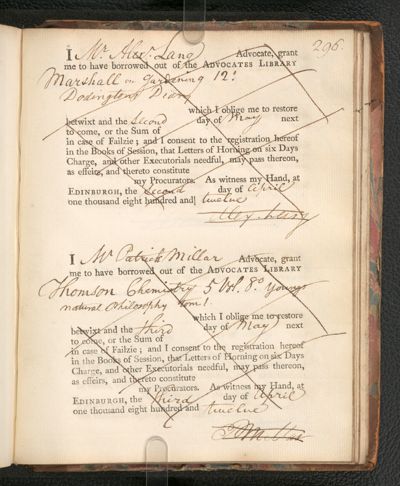 296.
I Mr. Alexr. Lang Advocate, grant
me to have borrowed out of the ADVOCATES LIBRARY
Marshall on Gardening 12o.
Dodington's Diary
which I oblige me to restore
betwixt and the Second day of May next
to come, or the Sum of
in case of Failzie; and I consent to the registration hereof
in the Books of Session, that Letters of Horning on six Days
Charge, and other Executorials needful, may pass thereon,
as effeirs, and thereto constitute
my Procurators. As witness my Hand, at
EDINBURGH, the Second day of April
one thousand eight hundred and twelve
Alex Lang
I Mr Patrick Millar Advocate, grant
me to have borrowed out of the ADVOCATES LIBRARY
Thomson Chemistry 5 Vol. 8o. Youngs
natural Philosophy tom 1.
which I oblige me to restore
betwixt and the third day of May next
to come, or the Sum of
in case of Failzie; and I consent to the registration hereof
in the Books of Session, that Letters of Horning on six Days
Charge, and other Executorials needful, may pass thereon,
as effeirs, and thereto constitute
my Procurators. As witness my Hand, at
EDINBURGH, the third day of April
one thousand eight hundred and twelve